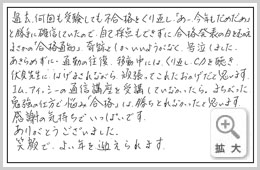 過去、何回も受験しても不合格をくり返し「あ〜、今年もだめだめ」
と勝手に確信していたので、自己採点もできずに合格発表の日をむかえ
まさかの"合格通知"。奇跡としかいいようがなく、号泣しました。
あきらめずに、通勤の往復、移動中には、くり返しCDを聴き
伏見先生にはげまされながら、頑張ってこれたおかげだと思います。
コム.アイシーの通信講座を受講していなかったら、まちがった
勉強の仕方で悩み"合格"は、勝ちとれなかったと思います。
感謝の気持ちでいっぱいです。
ありがとうございました。
笑顔で、よい年を迎えられます。
拡大